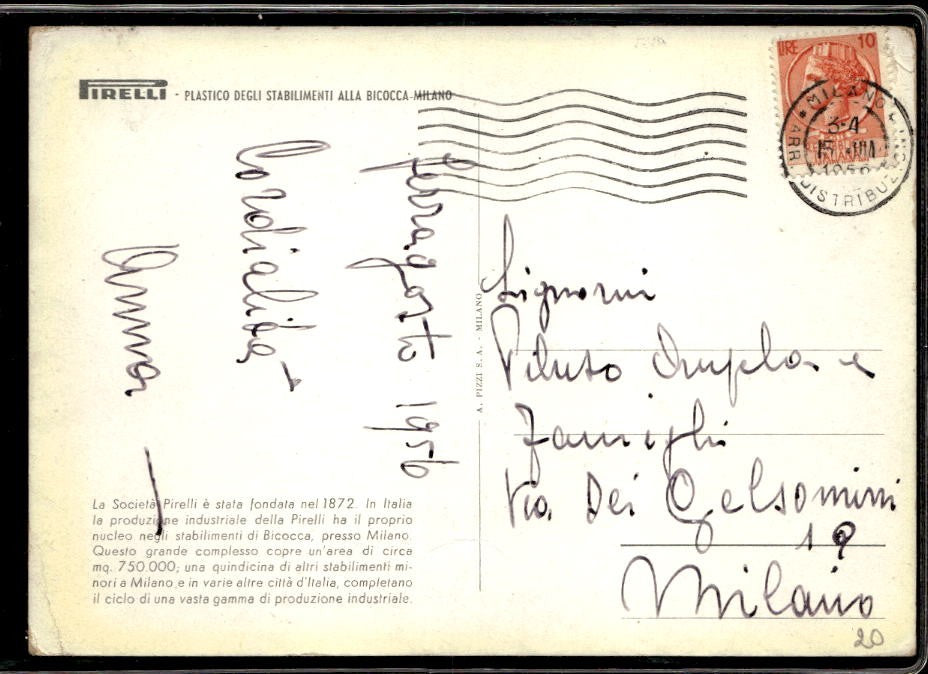 PIRELLI - PLASTICO DEGLI STABILIMENTI ALLA BICOCCA-MILANO
LIRE 10
MILANO
ARR DISTRIBUZ
3-4
15.VIII
1956
Ferragosto 1956
Cordialità
Signorini
Via Dei Gelsomini
19
Milano
A. PIZZI S.A. - MILANO
La Società Pirelli è stata fondata nel 1872. In Italia
la produzione industriale della Pirelli ha il proprio
nucleo negli stabilimenti di Bicocca, presso Milano.
Questo grande complesso copre un'area di circa
mq. 750.000; una quindicina di altri stabilimenti mi-
nori a Milano e in varie altre città d'Italia, completano
il ciclo di una vasta gamma di produzione industriale.
20